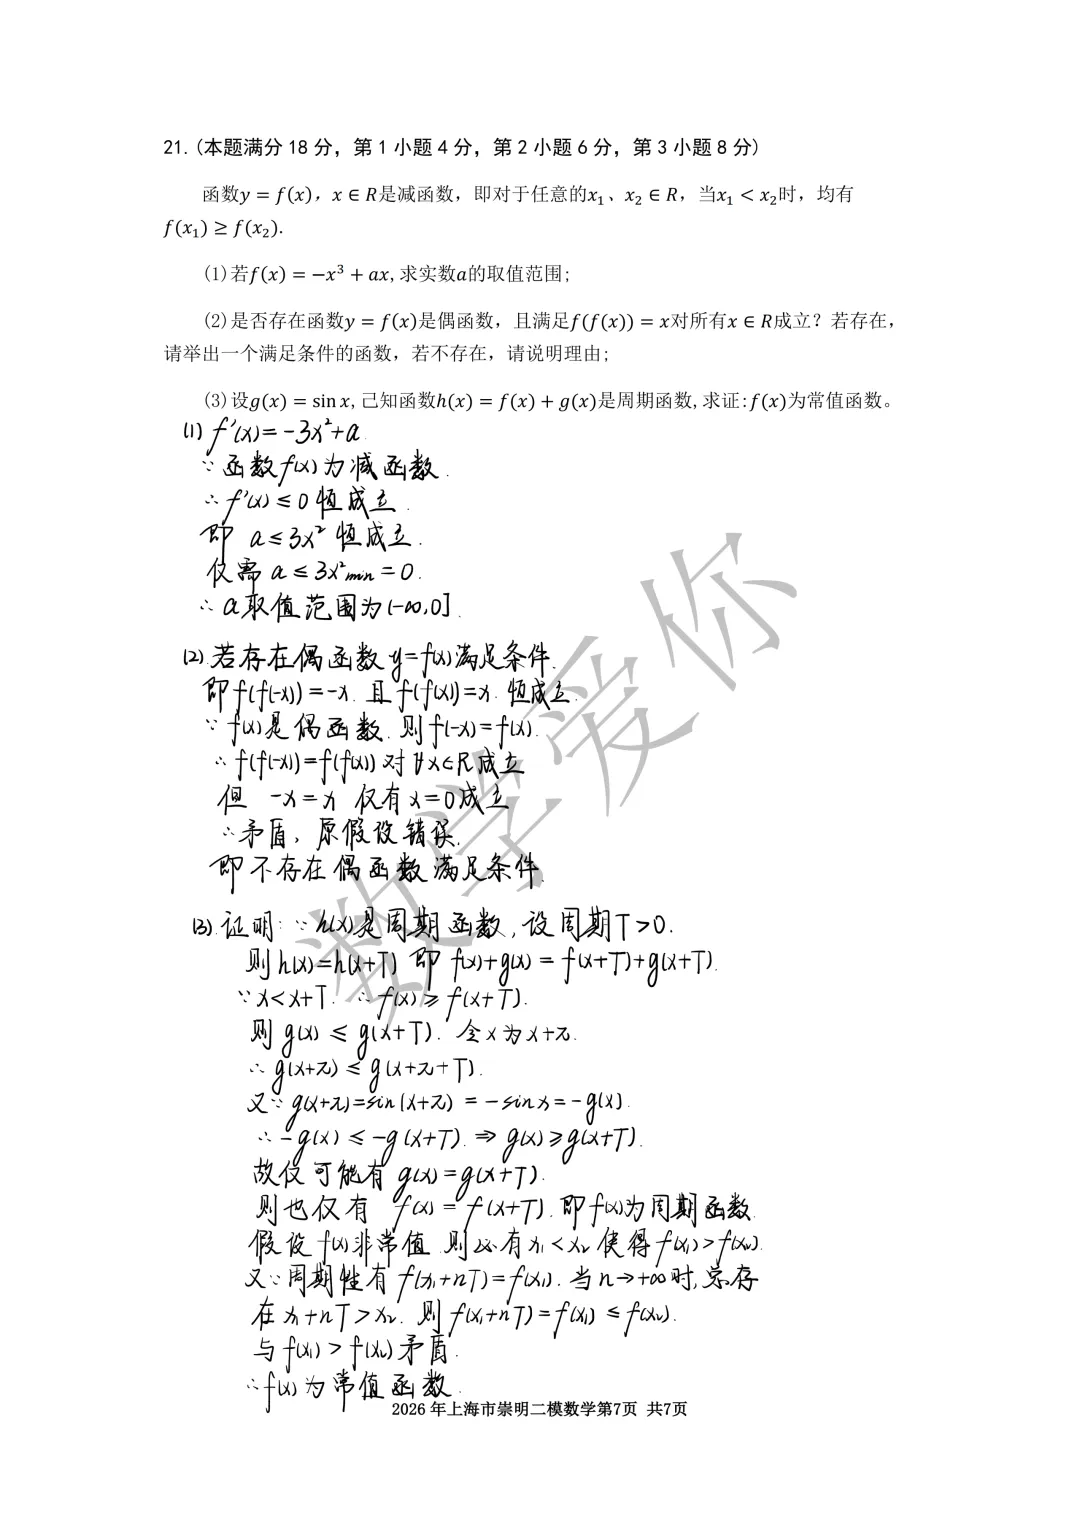 21.(本题满分 18 分，第 1 小题 4 分，第 2 小题 6 分，第 3 小题 8 分)
函数y = f(x)，x ∈ R是减函数，即对于任意的x₁、x₂ ∈ R，当x₁ < x₂时，均有
f(x₁) ≥ f(x₂).
(1)若f(x) = −x³ + ax,求实数a的取值范围;
(2)是否存在函数y = f(x)是偶函数，且满足f(f(x)) = x对所有x ∈ R成立？若存在，
请举出一个满足条件的函数，若不存在，请说明理由;
(3)设g(x) = sin x,己知函数h(x) = f(x) + g(x)是周期函数,求证:f(x)为常值函数。
(1) f'(x)=-3x²+a.
∵函数f(x)为减函数.
∴f'(x)≤0恒成立.
即 a≤3x² 恒成立.
仅需 a≤3x²min=0.
∴a取值范围为(-∞,0].
(2).若存在偶函数y=f(x)满足条件.
即f(f(-x))=-x.且f(f(x))=x.恒成立.
∵f(x)是偶函数.则f(-x)=f(x).
∴f(f(-x))=f(f(x))对∀x∈R成立
但 -x=x 仅有x=0成立
∴矛盾，原假设错误.
即不存在偶函数满足条件.
(3).证明:∵h(x)是周期函数,设周期T>0.
则h(x)=h(x+T) 即 f(x)+g(x)=f(x+T)+g(x+T).
∵x<x+T. ∴f(x)≥f(x+T).
则 g(x)≤g(x+T). 令x为x+π.
∴g(x+π)≤g(x+π+T).
又∵g(x+π)=sin(x+π)=-sinx=-g(x).
∴-g(x)≤-g(x+T).⇒g(x)≥g(x+T).
故仅可能有g(x)=g(x+T).
则也仅有 f(x)=f(x+T).即f(x)为周期函数.
假设f(x)非常值.则必有x₁<x₂使得f(x₁)>f(x₂).
又∵周期性有f(x₁+nT)=f(x₁).当n→+∞时,总存
在x₁+nT>x₂.则f(x₁+nT)=f(x₁)≤f(x₂).
与f(x₁)>f(x₂)矛盾.
∴f(x)为常值函数.
2026 年上海市崇明二模数学第7页 共7页
数学爱你